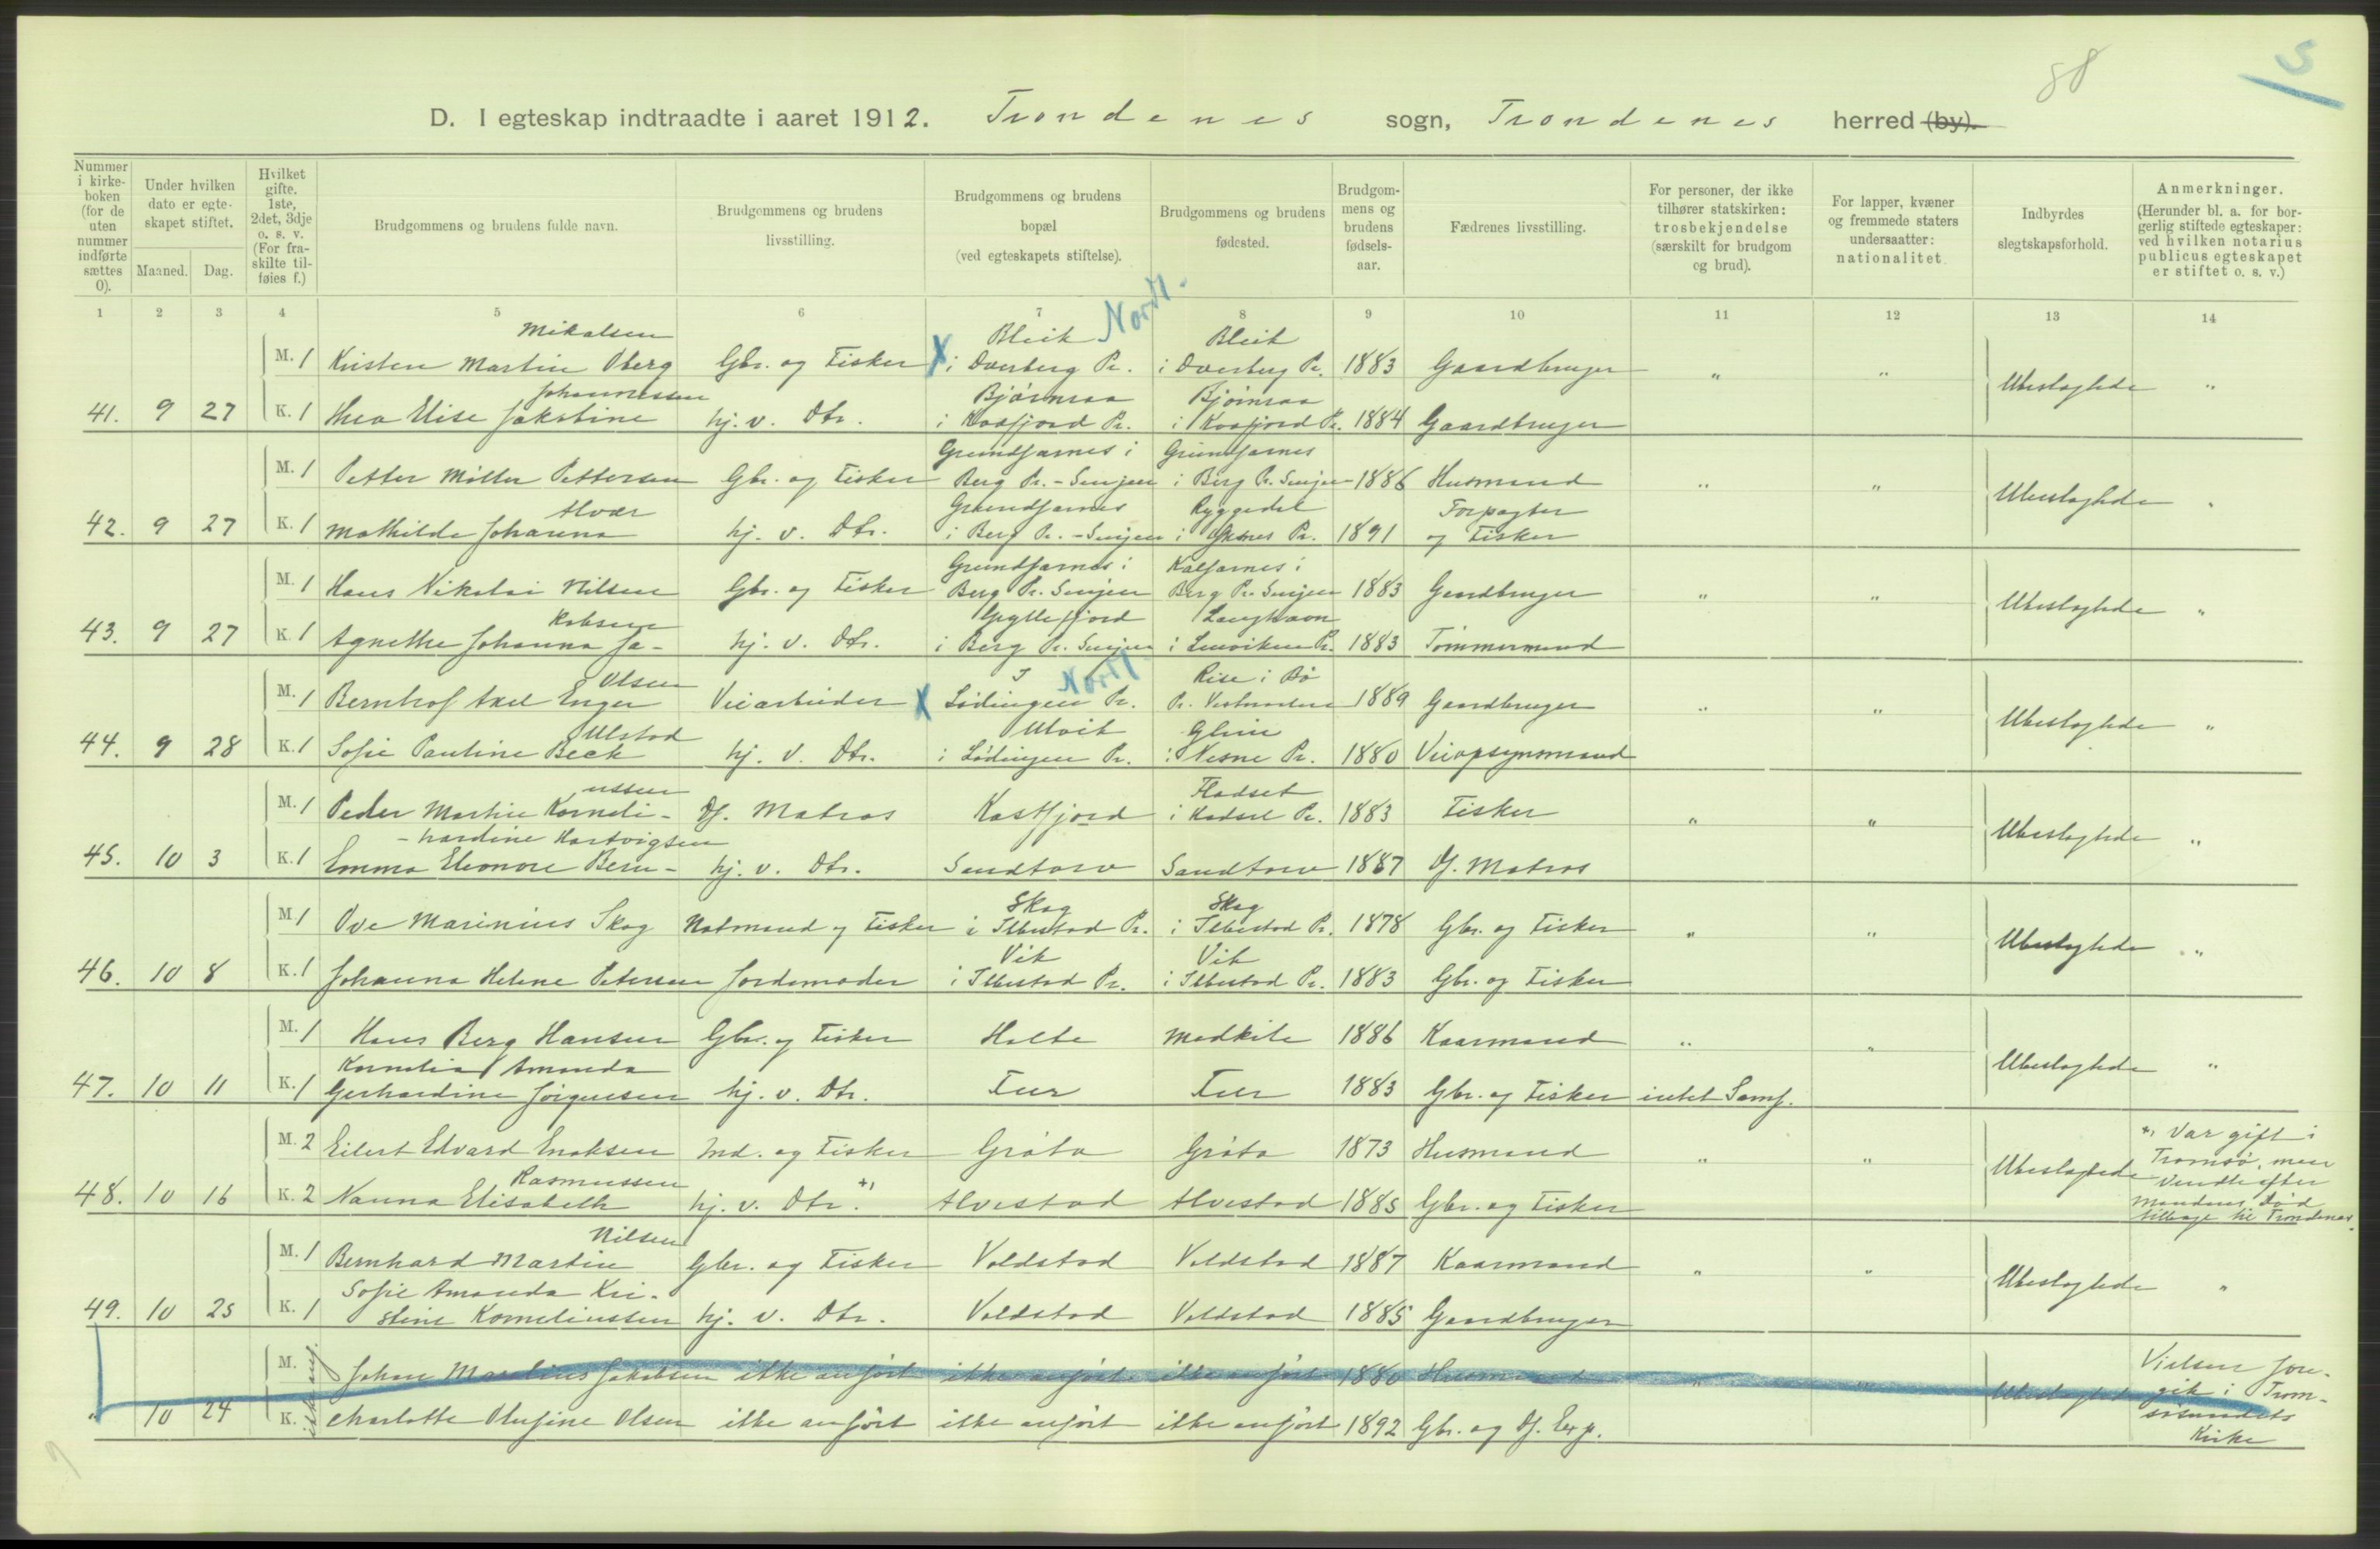 88
5
D. I egteskap indtraadte i aaret 1912. Trondenes sogn, Trondenes herred (by).
Nummer i kirkeboken (for de uten nummer indførte sættes 0).
Under hvilken dato er egteskapet stiftet.
Maaned. Dag.
Hvilket gifte. 1ste, 2det, 3dje o. s. v. (For fraskilte tilføies f.)
Brudgommens og brudens fulde navn.
Brudgommens og brudens livsstilling.
Brudgommens og brudens bopæl (ved egteskapets stiftelse).
Brudgommens og brudens fødested.
Brudgommens og brudens fødselsaar.
Fædrenes livsstilling.
For personer, der ikke tilhører statskirken: trosbekjendelse (særskilt for brudgom og brud).
For lapper, kvæner og fremmede staters undersaatter: nationalitet
Indbyrdes slegtskapsforhold.
Anmerkninger. (Herunder bl. a. for borgerlig stiftede egteskaper: ved hvilken notarius publicus egteskapet er stiftet o. s. v.)
1 2 3 4 5 6 7 8 9 10 11 12 13 14
Mikalsen Bleik Nordl. Bleik
M. 1 Kristen Martin Oberg Gbr. og Fisker X i Dverberg Pr. i Dverberg Pr. 1883 Gaardbruger " " Ubeslægtede "
Johannessen Bjørnraa Bjørnraa
41. 9 27 K. 1 Thea Elise Jakobine hj. v. Dtr. i Kvæfjord Pr. i Kvæfjord Pr. 1884 Gaardbruger
Grundfarnes i Grundfarnes
M. 1 Petter Møller Pettersen Gbr. og Fisker Berg Pr. - Senjen i Berg Pr. Senjen 1886 Husmand " " Ubeslægtede "
Alvær Grundfarnes Ryggedal Forpagter
42. 9 27 K. 1 Mathilde Johanna hj. v. Dtr. i Berg Pr. - Senjen i Øksnes Pr. 1891 og Fisker
Grundfarnes i Kalfarnes i
M. 1 Hans Nikolai Nilsen Gbr. og Fisker Berg Pr. Senjen Berg Pr. Senjen 1883 Gaardbruger " " Ubeslægtede "
Kobsen Gryllefjord Langhavn
43. 9 27 K. 1 Agnethe Johanna Ja- hj. v. Dtr. i Berg Pr. Senjen i Lenviken Pr. 1883 Tømmermand
Olsen I Nordl Rise i Bø
M. 1 Bernhof Axel Enger Veiarbeider X Lødingen Pr. Pr. Vesteraalen 1889 Gaardbruger " " Ubeslægtede "
Ulstad Ulvik Glein
44. 9 28 K. 1 Sofie Pauline Beck hj. v. Dtr. i Lødingen Pr. i Nesne Pr. 1880 Veiopsynsmand
ussen Fladset
M. 1 Peder Martin Korneli- Df. Matros Kasfjord i Hadsel Pr. 1883 Fisker " " Ubeslægtede "
- hardine Hartvigsen
45. 10 3 K. 1 Emma Eleonore Bern- hj. v. Dtr. Sandtorv Sandtorv 1887 Df. Matros
Skog Skog
M. 1 Ove Marinius Skog Notmand og Fisker i Ibbestad Pr. i Ibbestad Pr. 1878 Gbr. og Fisker " " Ubeslægtede "
Vik Vik
46. 10 8 K. 1 Johanna Helene Petersen Jordemoder i Ibbestad Pr. i Ibbestad Pr. 1883 Gbr. og Fisker
M. 1 Hans Berg Hansen Gbr. og Fisker Holte Medkile 1886 Kaarmand " " Ubeslægtede "
Kornelia Amanda
47. 10 11 K. 1 Gerhardine Jörgensen hj. v. Dtr. 1883 Gbr. og Fisker intet Samf.
M. 2 Eilert Edvard Enoksen Ind. og Fisker Grøta Grøta 1873 Husmand " " Ubeslægtede
+) Var gift i Tromsø, men vendte efter mandens Død tilbage til Trondenes.
Rasmussen
48. 10 16 K. 2 Nanna Elisabeth hj. v. Dtr. +) Alvestad Alvestad 1885 Gbr. og Fisker
Nilsen
M. 1 Bernhard Martin Gbr. og Fisker Voldstad Voldstad 1887 Kaarmand " " Ubeslægtede "
Sofie Amanda Kri-
49. 10 25 K. 1 stine Korneliussen hj. v. Dtr. Voldstad Voldstad 1885 Gaardbruger
M. ikke anf. Johan Marelius Jakobsen ikke anført ikke anført ikke anført 1880 Husmand " " Ubeslægtede
Vielsen foregik i Tromsøsundets Kirke
" 10 24 K. Charlotte Olufine Olsen ikke anført ikke anført ikke anført 1892 Gbr. og Df. Exp.